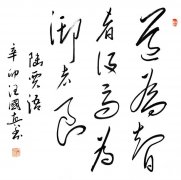 道為智
者設馬為
御者良
陸賈語
辛卯汪國真書